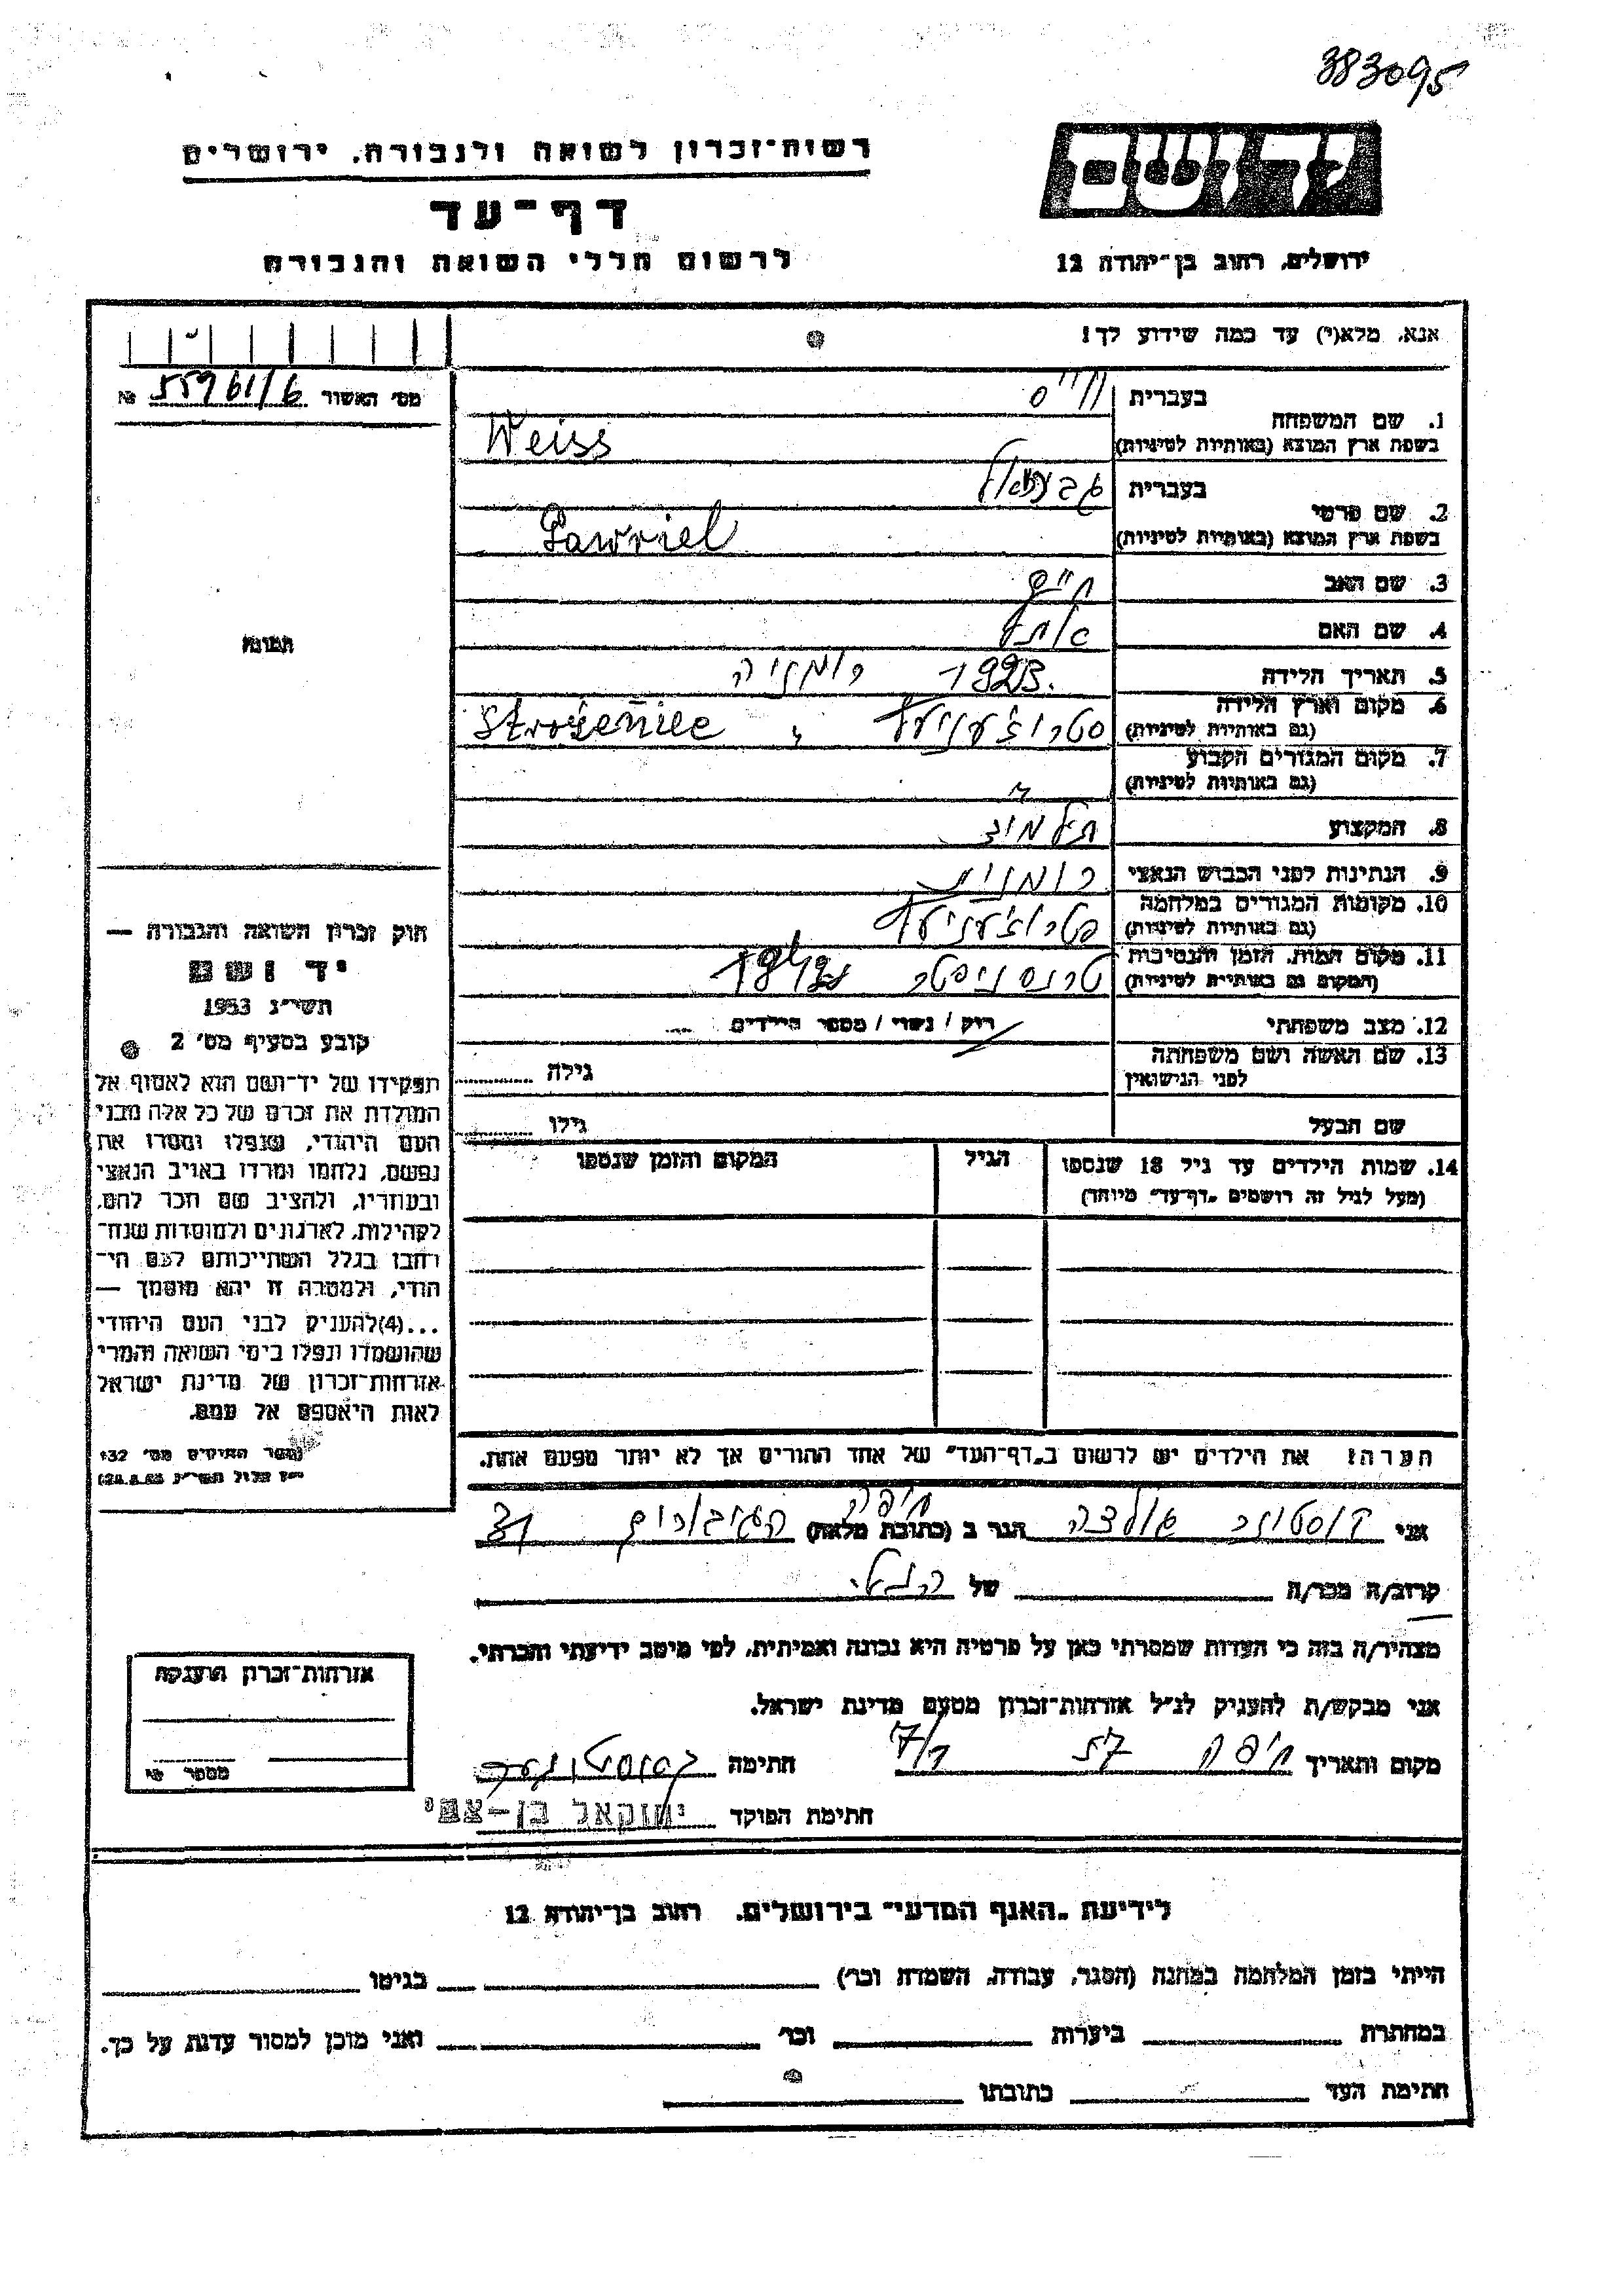 383095
רשות־זכרון לשואה ולגבורה, ירושלים
יד ושם
דף־עד
לרשום חללי השואה והגבורה
ירושלים, רחוב בן־יהודה 12
אנא, מלא(י) עד כמה שידוע לך!
מס׳ האשור 55961/6 №
1. שם המשפחה
בעברית
ווייס
בשפת ארץ המוצא (באותיות לטיניות)
Weiss
2. שם פרטי
בעברית
בשפת ארץ המוצא (באותיות לטיניות)
תמונה
3. שם האב
חיים
4. שם האם
אתל
5. תאריך הלידה
1923. רומניה
6. מקום וארץ הלידה
(גם באותיות לטיניות)
סטרוז'עניעץ, Strożeniec
7. מקום המגורים הקבוע
(גם באותיות לטיניות)
"
8. המקצוע
תלמיד
9. הנתינות לפני הכבוש הנאצי
רומנית
10. מקומות המגורים במלחמה
(גם באותיות לטיניות)
סטרוז'עניעץ
11. מקום המות, הזמן והנסיבות
(המקום גם באותיות לטיניות)
טרנסניסטר 1942
12. מצב משפחתי
רוק / נשוי / מספר הילדים ...
13. שם האשה ושם משפחתה
לפני הנישואין
גילה
שם הבעל
גילו
14. שמות הילדים עד גיל 18 שנספו
(מעל לגיל זה רושמים „דף־עד" מיוחד)
הגיל
המקום והזמן שנספו
חוק זכרון השואה והגבורה —
יד ושם
תשי״ג 1953
קובע בסעיף מס׳ 2
תפקידו של יד־ושם הוא לאסוף אל
המולדת את זכרם של כל אלה מבני
העם היהודי, שנפלו ומסרו את
נפשם, נלחמו ומרדו באויב הנאצי
ובעוזריו, ולהציב שם וזכר להם,
לקהילות, לארגונים ולמוסדות שנח־
רחבו בגלל השתייכותם לעם הי־
הודי, ולמטרה זו יהא מוסמך —
...(4)להעניק לבני העם היהודי
שהושמדו ונפלו בימי השואה והמרי
אזרחות־זכרון של מדינת ישראל
לאות היאספם אל עמם.
(ספר החוקים מס׳ 132
י״ז אלול תשי״ג 28.8.53)
הערה! את הילדים יש לרשום ב„דף־העד" של אחד ההורים אך לא יותר מפעם אחת.
אני
הגר ב (כתובת מלאה) חיפה הגיבורים
קרוב/ה מכר/ה של
מצהיר/ה בזה כי העדות שמסרתי כאן על פרטיה היא נכונה ואמיתית, לפי מיטב ידיעתי והכרתי.
אני מבקש/ת להעניק לנ״ל אזרחות־זכרון מטעם מדינת ישראל.
מקום ותאריך חיפה חתימה
חתימת הפוקד יחזקאל בן-צבי
אזרחות־זכרון הוענקה
מספר №
לידיעת „האגף המדעי" בירושלים, רחוב בן־יהודה 12
הייתי בזמן המלחמה במחנה (הסגר, עבודה, השמדה וכו׳) בגיטו
במחתרת ביערות וכו׳ ואני מוכן למסור עדות על כך.
חתימת העד כתובתו